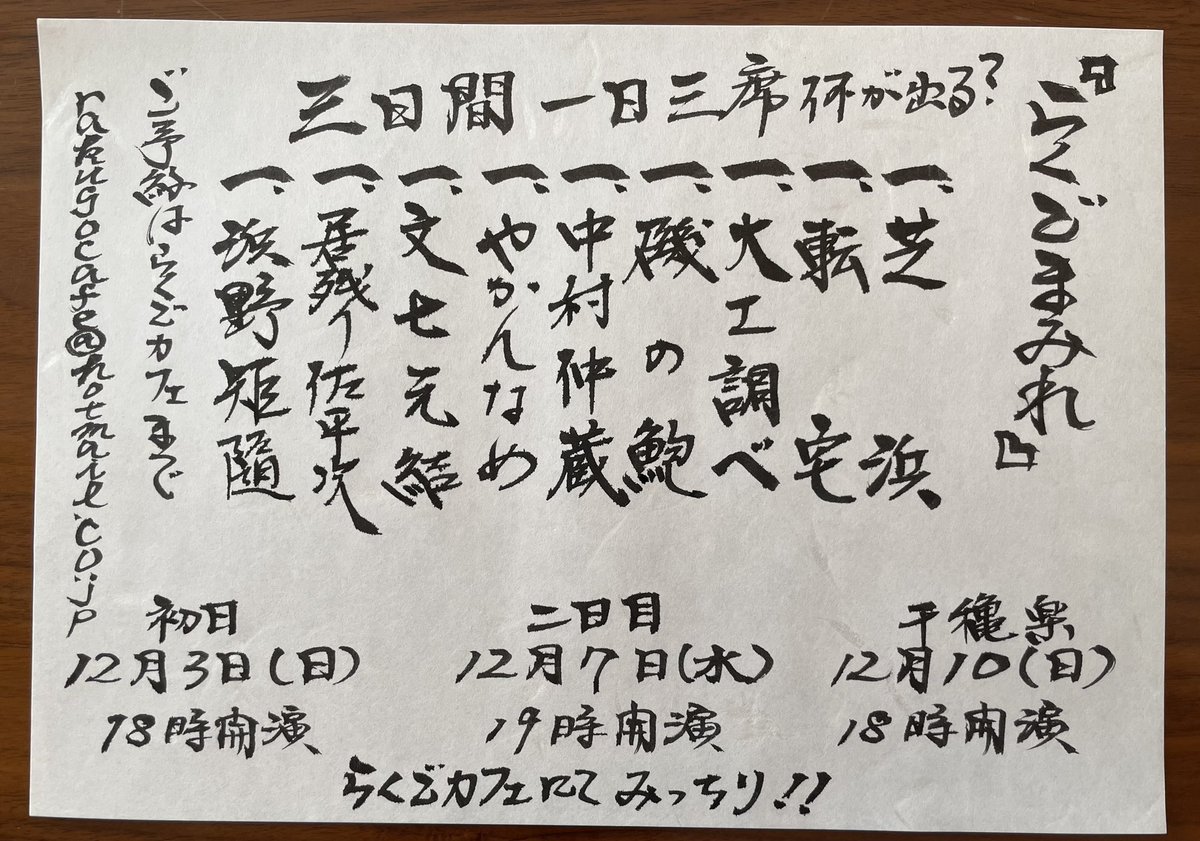 『らくごまみれ』
三日間 一日三席 何が出る?
一、芝浜
一、転宅
一、大工調べ
一、磯の鮑
一、中村仲蔵
一、やかんなめ
一、文七元結
一、居残り佐平次
一、浜野矩隨
ご予約はらくごカフェまで
rakugocafe@hotmail.co.jp
初日
12月3日(日)
18時開演
二日目
12月7日(水)
19時開演
千穐楽
12月10日(日)
18時開演
らくごカフェにてみっちり!!